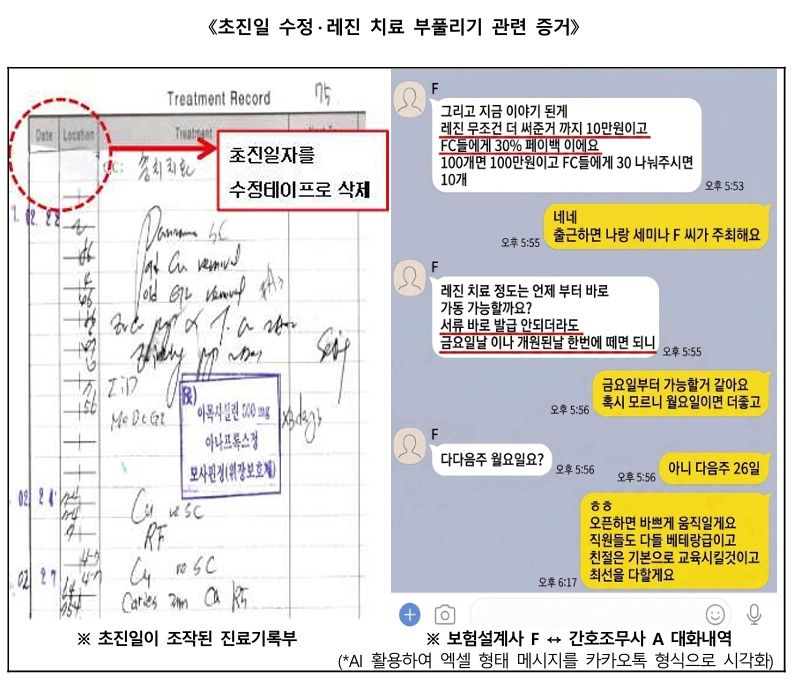 《초진일 수정·레진 치료 부풀리기 관련 증거》
Treatment Record 75
Date Location Treatment
초진일자를
수정테이프로 삭제
CC: 충치치료
02. 22
SC
removal
old removal
I&D
아목사실린 500 mg
아나프록스정
모사핀정(위장보호제)
x3days
SC
RF
02 27
SC
Caries
※ 초진일이 조작된 진료기록부
F
그리고 지금 이야기 된게
레진 무조건 더 써준거 까지 10만원이고
FC들에게 30% 페이백 이에요
100개면 100만원이고 FC들에게 30 나눠주시면
10개
오후 5:53
네네
출근하면 나랑 세미나 F 씨가 주최해요
오후 5:55
F
레진 치료 정도는 언제 부터 바로
가동 가능할까요?
서류 바로 발급 안되더라도
금요일날 이나 개원된날 한번에 떼면 되니
오후 5:55
금요일부터 가능할거 같아요
혹시 모르니 월요일이면 더좋고
오후 5:56
F
다다음주 월요일요?
오후 5:56
아니 다음주 26일
오후 5:56
ㅎㅎ
오픈하면 바쁘게 움직일게요
직원들도 다들 베테랑급이고
친절은 기본으로 교육시킬것이고
최선을 다할게요
오후 6:17
※ 보험설계사 F ↔ 간호조무사 A 대화내역
(*AI 활용하여 엑셀 형태 메시지를 카카오톡 형식으로 시각화)